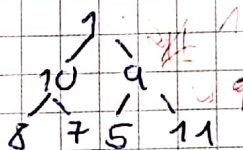 1
10 9
8 7 5 11